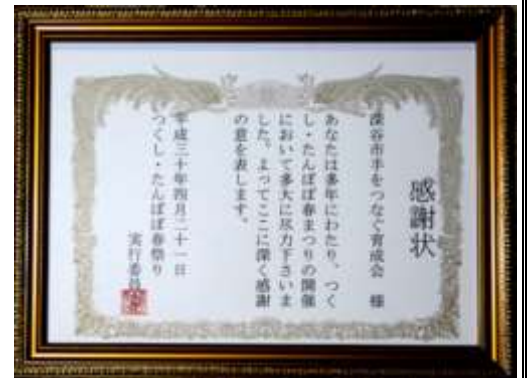 感謝状
深谷市手をつなぐ育成会 様
あなたは多年にわたり、つく
し・たんぽぽ春まつりの開催
において多大に尽力下さいま
した。よってここに深く感謝
の意を表します。
平成三十年四月二十一日
つくし・たんぽぽ春祭り
実行委員